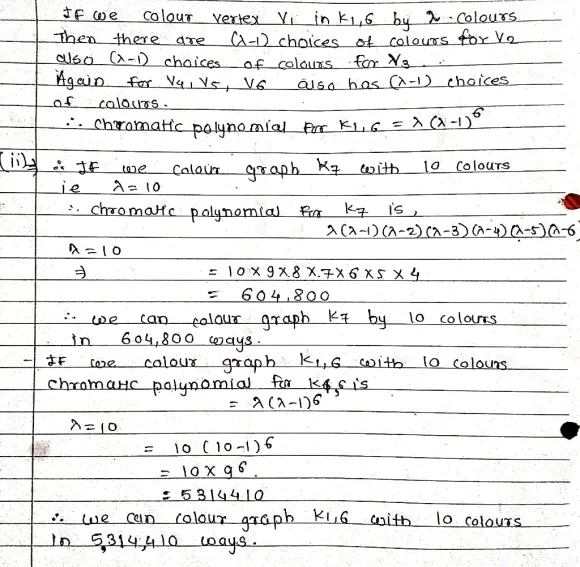 If we colour vertex V1 in K1,6 by λ-colours
Then there are (λ-1) choices of colours for V2
also (λ-1) choices of colours for V3.
Again for V4, V5, V6 also has (λ-1) choices
of colours.
∴ chromatic polynomial for K1,6 = λ(λ-1)⁶
(ii)⇒ ∴ If we colour graph K7 with 10 colours
ie λ=10
∴ chromatic polynomial for K7 is,
λ(λ-1)(λ-2)(λ-3)(λ-4)(λ-5)(λ-6)
λ=10
⇒ = 10×9×8×7×6×5×4
= 604,800
∴ we can colour graph K7 by 10 colours
in 604,800 ways.
- If we colour graph K1,6 with 10 colours
chromatic polynomial for K1,6 is
= λ(λ-1)6
λ=10
= 10 (10-1)6
= 10×9⁶.
= 5314410
∴ we can colour graph K1,6 with 10 colours
in 5,314,410 ways.